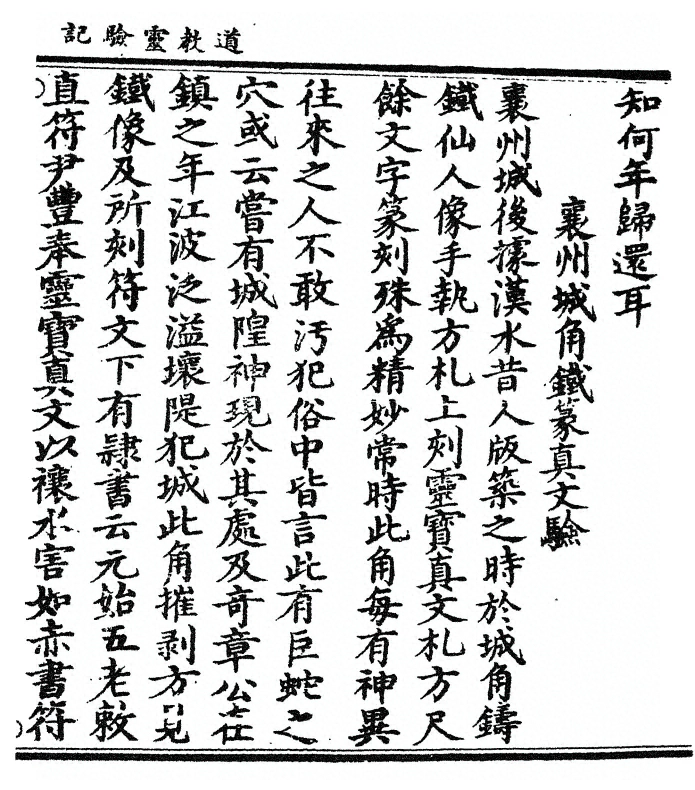 道教靈驗記
知何年歸還耳
襄州城角鐵篆真文驗
襄州城後據漢水昔人版築之時於城角鑄
鐵仙人像手執方札上刻靈寶真文札方尺
餘文字篆刻殊為精妙常時此角每有神異
往來之人不敢汚犯俗中皆言此有巨蛇之
穴或云嘗有城隍神現於其處及奇章公在
鎮之年江波泛溢壞隄犯城此角摧剥方見
鐵像及所刻符文下有隸書云元始五老敕
直符尹豐奉靈寶真文以禳水害如赤書符